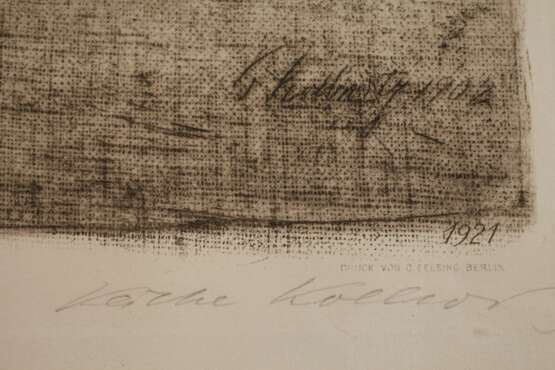 Kollwitz 1902
1921
DRUCK VON O. FELSING BERLIN
Käthe Kollwitz